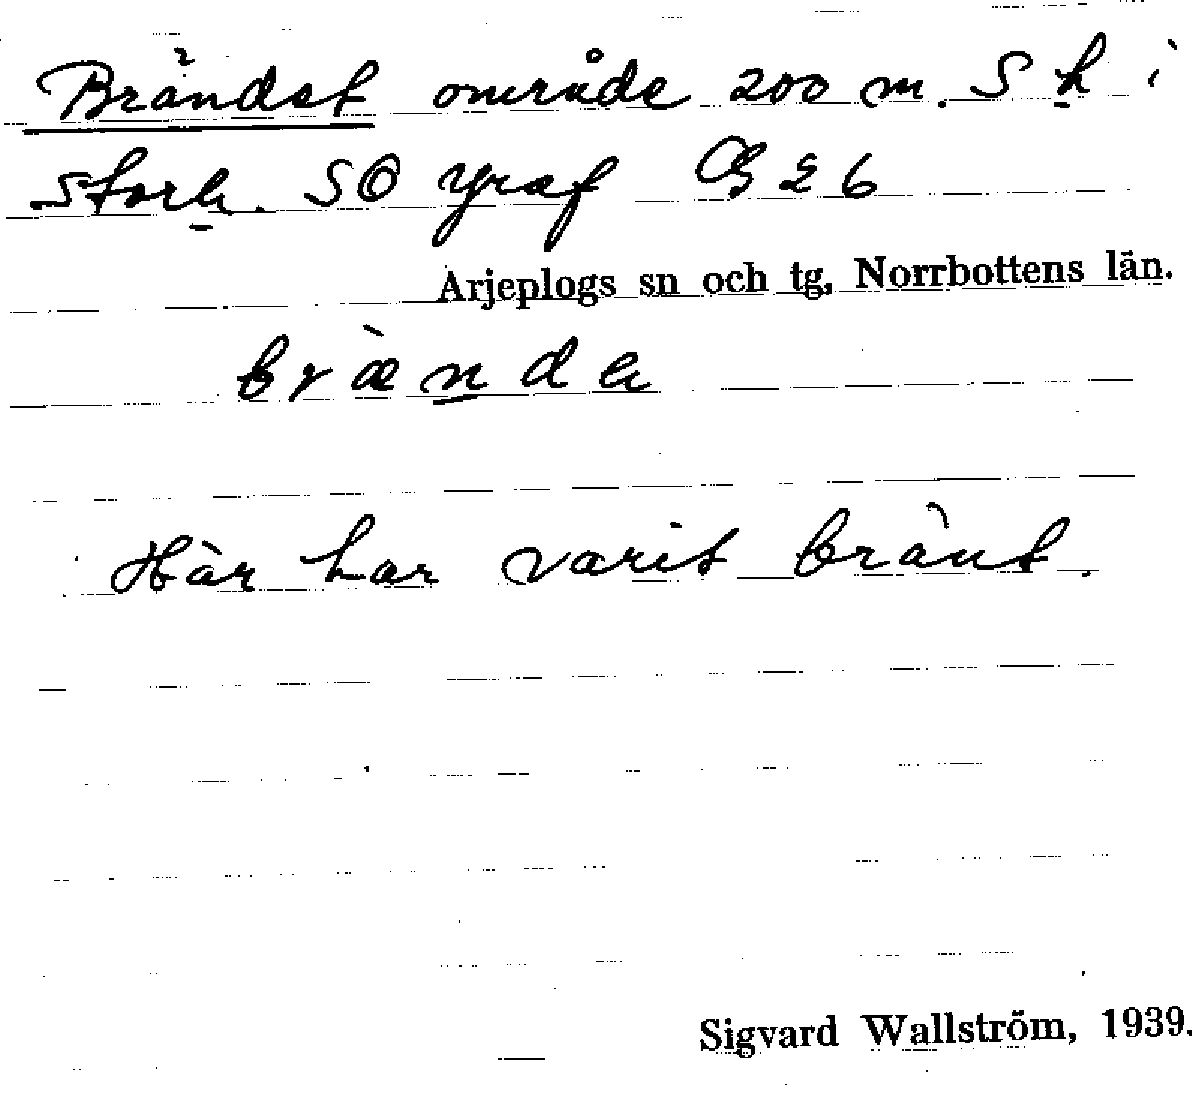 Brändet område 200 m. S h i
Stork. SO graf B 26
Arjeplogs sn och tg, Norrbottens län.
brænda
Här har varit bränt.
Sigvard Wallström, 1939.